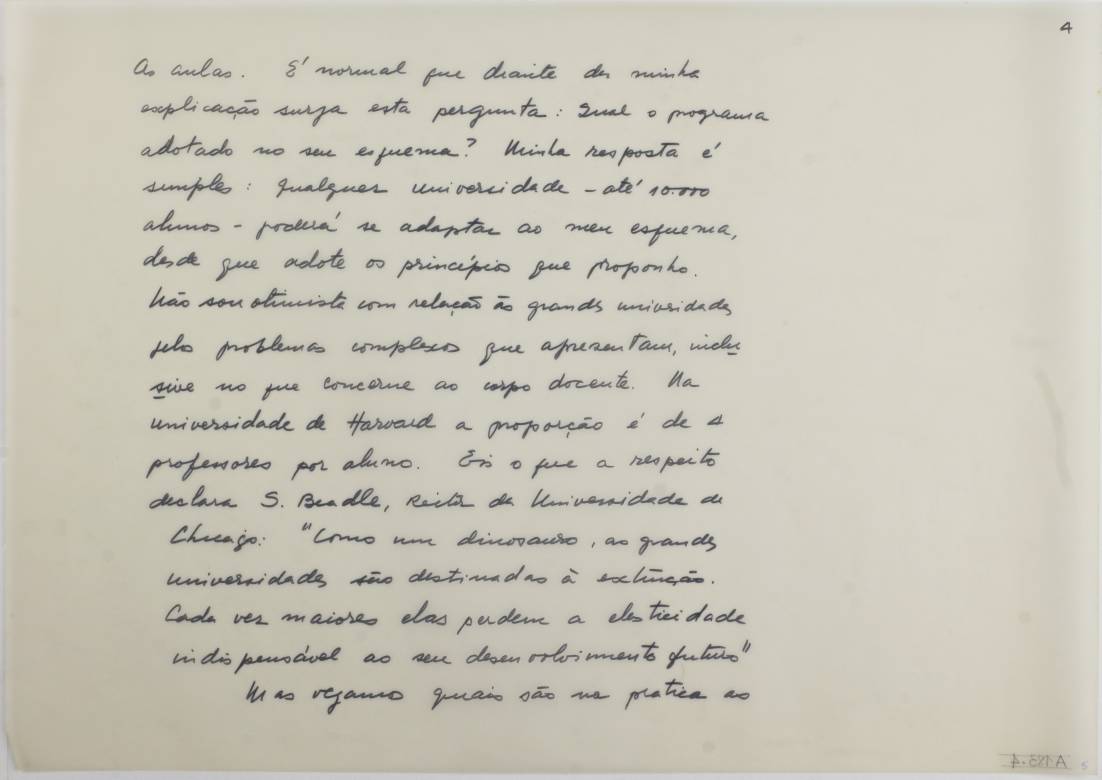 4
As aulas. É normal que diante da minha
explicação surja esta pergunta: Qual o programa
adotado no seu esquema? Minha resposta é
simples: qualquer universidade - até 10.000
alunos - poderá se adaptar ao meu esquema,
desde que adote os princípios que proponho.
Não sou otimista com relação às grandes univesidades
pelos problemas complexos que apresentam, inclu
sive no que concerne ao corpo docente. Na
universidade de Harvard a proporção é de 4
professores por aluno. Eis o que a respeito
declara S. Beadle, Reitor da Universidade de
Chicago: "Como um dinosauro, as grandes
universidades são destinadas à extinção.
Cada vez maiores elas perdem a elasticidade
indispensável ao seu desenvolvimento futuro"
Mas vejamos quais são na pratica as
A185.4
5